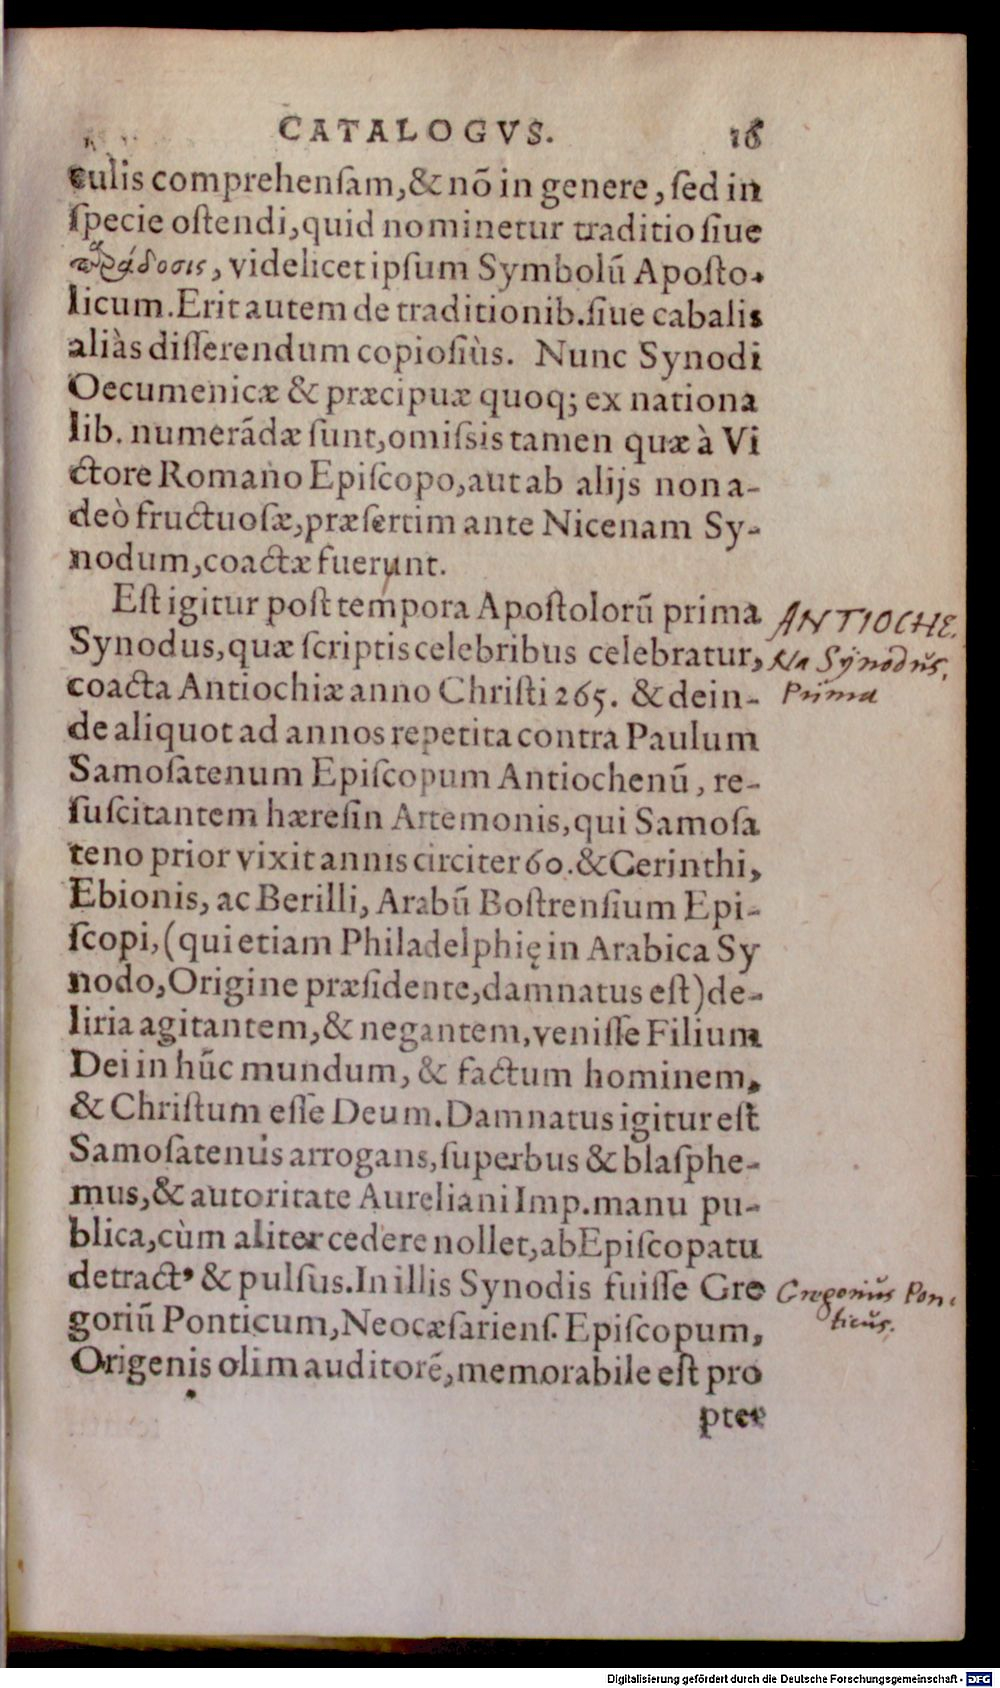 CATALOGVS. 16
culis comprehenſam,& nõ in genere, ſed in
ſpecie oſtendi,quid nominetur traditio ſiue
παράδοσις, videlicet ipſum Symbolũ Apoſto-
licum.Erit autem de traditionib.ſiue cabalis
aliàs diſſerendum copioſiùs. Nunc Synodi
Oecumenicæ & præcipuæ quoq; ex nationa
lib. numerãdæ ſunt,omiſsis tamen quæ à Vi
ctore Romano Epiſcopo,aut ab alijs non a-
deò fructuoſæ,præſertim ante Nicenam Sy-
nodum,coactæ fuerunt.
Eſt igitur poſt tempora Apoſtolorũ prima
Synodus,quæ ſcriptis celebribus celebratur,
coacta Antiochiæ anno Chriſti 265. & dein-
de aliquot ad annos repetita contra Paulum
Samoſatenum Epiſcopum Antiochenũ, re-
ſuſcitantem hæreſin Artemonis,qui Samoſa
teno prior vixit annis circiter 60.& Cerinthi,
Ebionis, ac Berilli, Arabũ Boſtrenſium Epi-
ſcopi,(qui etiam Philadelphię in Arabica Sy
nodo,Origine præſidente,damnatus eſt)de-
liria agitantem,& negantem,veniſſe Filium
Dei in hũc mundum, & factum hominem,
& Chriſtum eſſe Deum.Damnatus igitur eſt
Samoſatenus arrogans,ſuperbus & blaſphe-
mus,& autoritate Aureliani Imp.manu pu-
blica,cùm aliter cedere nollet,ab Epiſcopatu
detractꝰ & pulſus.In illis Synodis fuiſſe Gre
goriũ Ponticum,Neocæſarienſ. Epiſcopum,
Origenis olim auditorẽ,memorabile eſt pro
pter
ANTIOCHE.
Na Synodŭs.
Prima
Gregoriŭs Pon-
ticŭs.
Digitalisierung gefördert durch die Deutsche Forschungsgemeinschaft - DFG